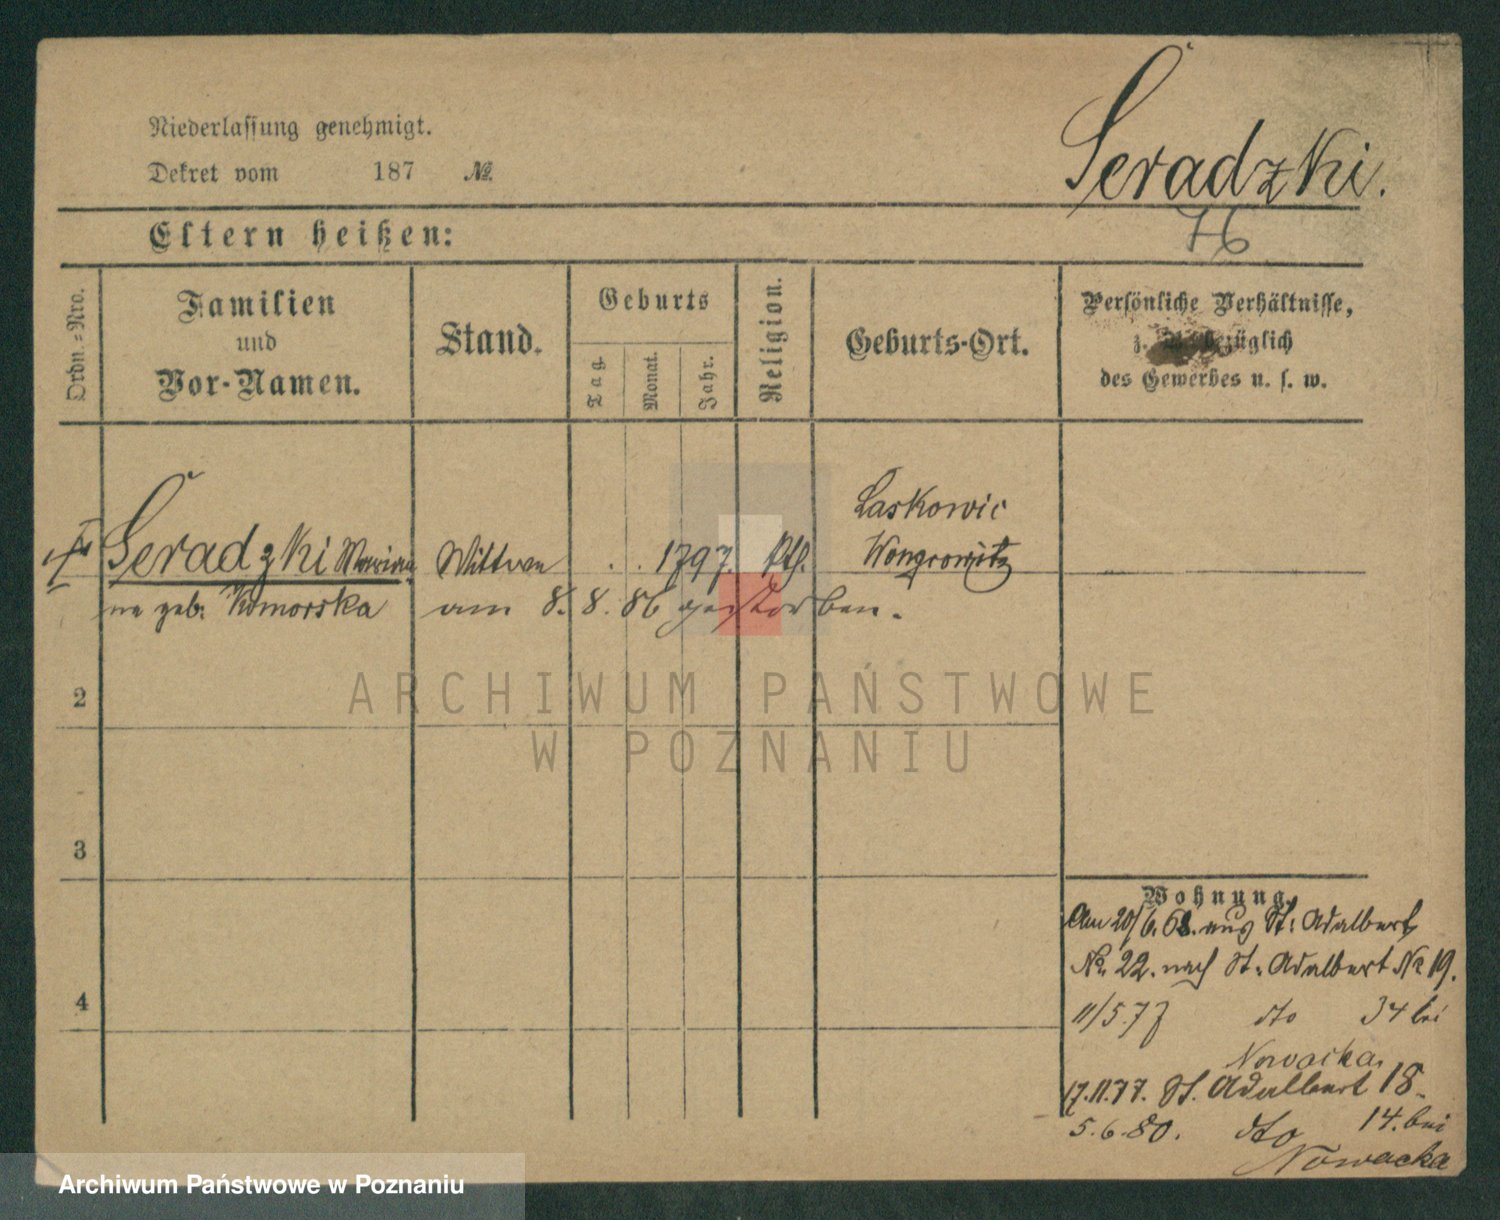 Niederlassung genehmigt.
Seradzki.
Dekret vom 187 №
76
Eltern heißen:
Ordn.-Nro.
Familien
und
Vor-Namen.
Stand.
Geburts
Tag.
Monat.
Jahr.
Religion.
Geburts-Ort.
Persönliche Verhältnisse,
z. B. bezüglich
des Gewerbes u. s. w.
Seradzki Marian
na geb: Komorska
Wittwe
. . 1797. kth.
Laskowic
Wongrowitz
am 8. 8. 86 gestorben.
2
3
4
ARCHIWUM PAŃSTWOWE
W POZNANIU
Wohnung.
Am 20/6. 68. aus St: Adalbert
№ 22. nach St: Adalbert № 19.
11/5 77 dto 34 bei
Nowacka.
17.11.77. St. Adalbert 18.
5.6.80. dto 14. bei
Nowacka
Archiwum Państwowe w Poznaniu